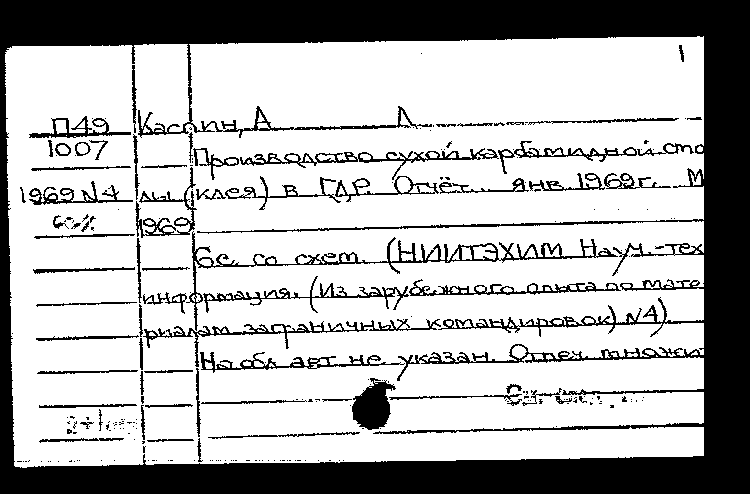 1
П49 Каспин, А Л
1007 Производство сухой карбамидной смо
1969 N4 лы (клея) в ГДР. Отчёт.. янв 1969г. М
1969
6с. со схем. (НИИТЭХИМ Науч.-тех
информация. (Из зарубежного опыта по мате
риалам заграничных командировок) N4).
На обл авт не указан. Отпеч множит
См.